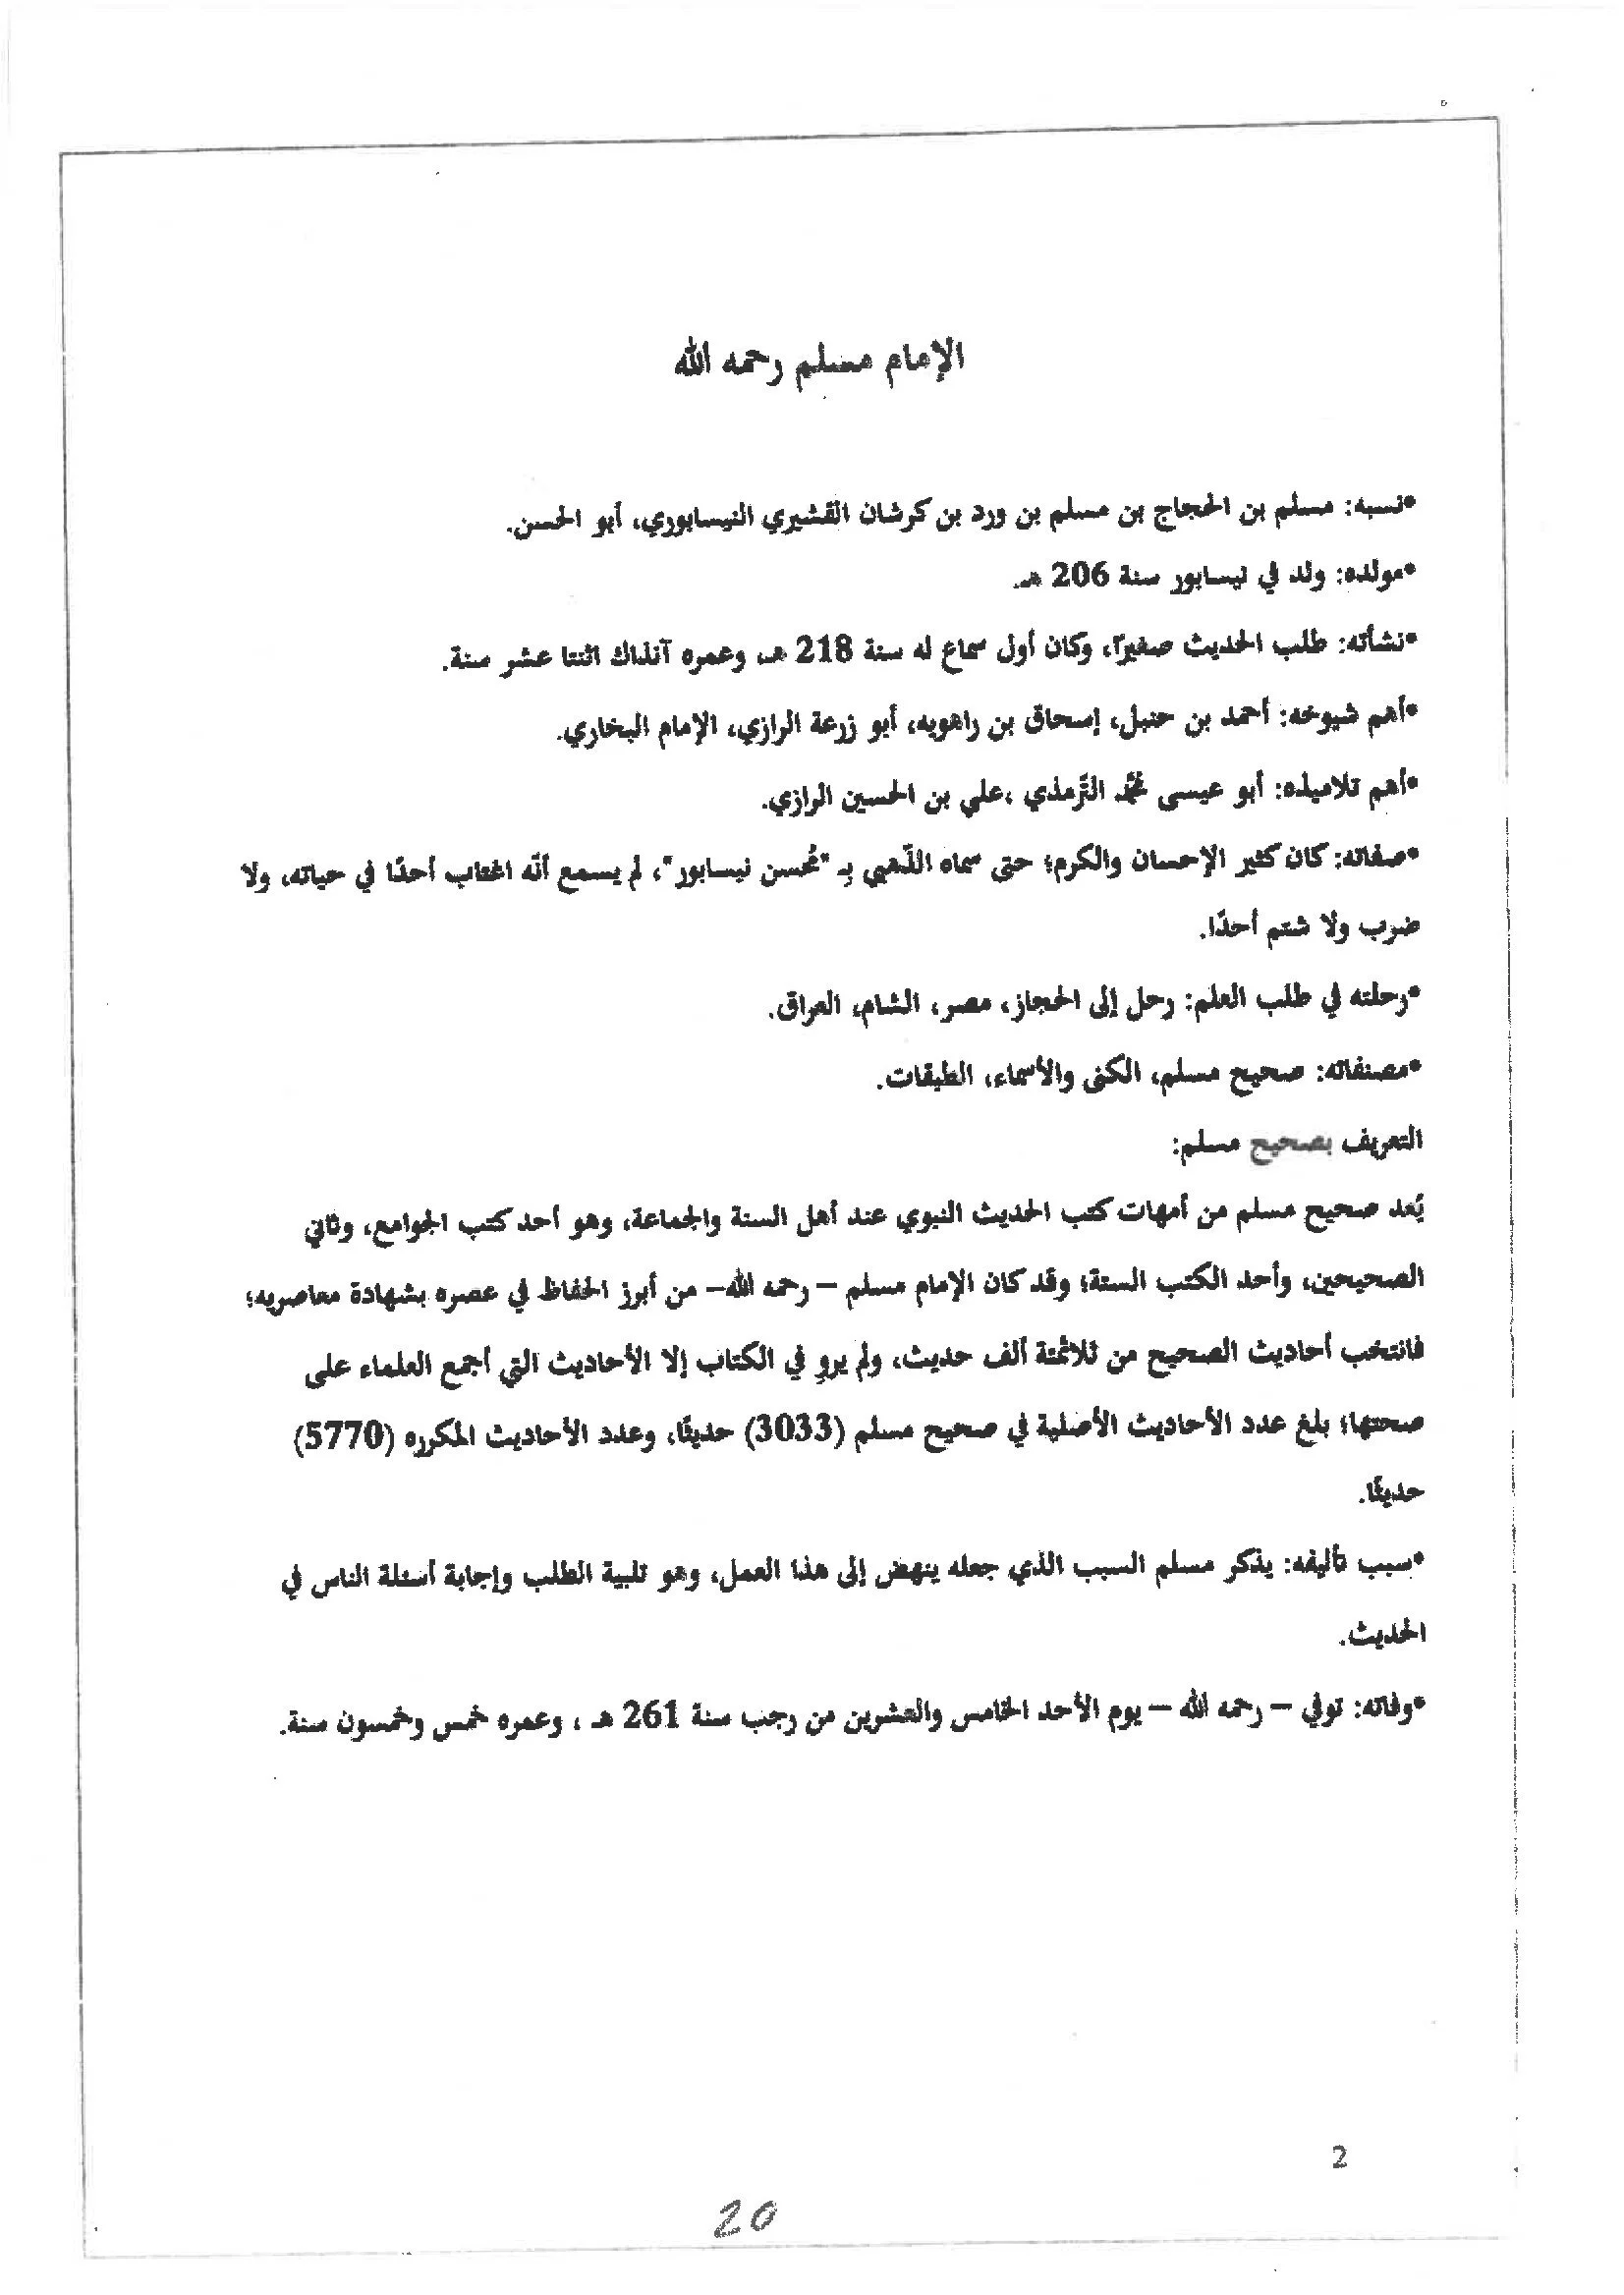 الإمام مسلم رحمه الله
*نسبه: مسلم بن الحجاج بن مسلم بن ورد بن كرشان القشيري النيسابوري، أبو الحسن.
*مولده: ولد في نيسابور سنة 206 هـ.
*نشأته: طلب الحديث صغيرًا، وكان أول سماع له سنة 218 هـ، وعمره آنذاك اثنتا عشر سنة.
*أهم شيوخه: أحمد بن حنبل، إسحاق بن راهويه، أبو زرعة الرازي، الإمام البخاري.
*أهم تلاميذه: أبو عيسى محمَّد التّرمذي ،علي بن الحسين الرازي.
*صفاته: كان كثير الإحسان والكرم؛ حتى سماه الذّهبي بِـ "مُحسن نيسابور"، لم يسمع أنّه اغتاب أحدًا في حياته، ولا
ضرب ولا شتم أحدًا.
*رحلته في طلب العلم: رحل إلى الحجاز، مصر، الشام، العراق.
*مصنفاته: صحيح مسلم، الكنى والأسماء، الطبقات.
التعريف بصحيح مسلم:
يُعد صحيح مسلم من أمهات كتب الحديث النبوي عند أهل السنة والجماعة، وهو أحد كتب الجوامع، وثاني
الصحيحين، وأحد الكتب الستة؛ وقد كان الإمام مسلم – رحمه الله– من أبرز الحفاظ في عصره بشهادة معاصريه؛
فانتخب أحاديث الصحيح من ثلاثمئة ألف حديث، ولم يروِ في الكتاب إلا الأحاديث التي أجمع العلماء على
صحتها؛ بلغ عدد الأحاديث الأصلية في صحيح مسلم (3033) حديثًا، وعدد الأحاديث المكرره (5770)
حديثًا.
*سبب تأليفه: يذكر مسلم السبب الذي جعله ينهض إلى هذا العمل، وهو تلبية الطلب وإجابة أسئلة الناس في
الحديث.
*وفاته: توفي – رحمه الله – يوم الأحد الخامس والعشرين من رجب سنة 261 هـ ، وعمره خمس وخمسون سنة.
2
20